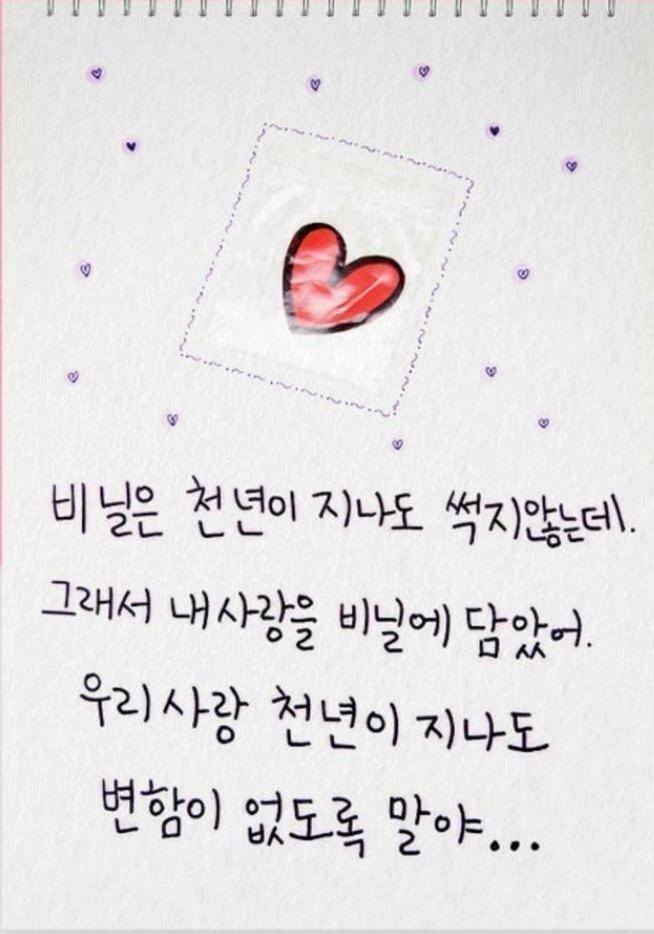 비닐은 천년이 지나도 썩지않는데.
그래서 내사랑을 비닐에 담았어.
우리사랑 천년이 지나도
변함이 없도록 말야...